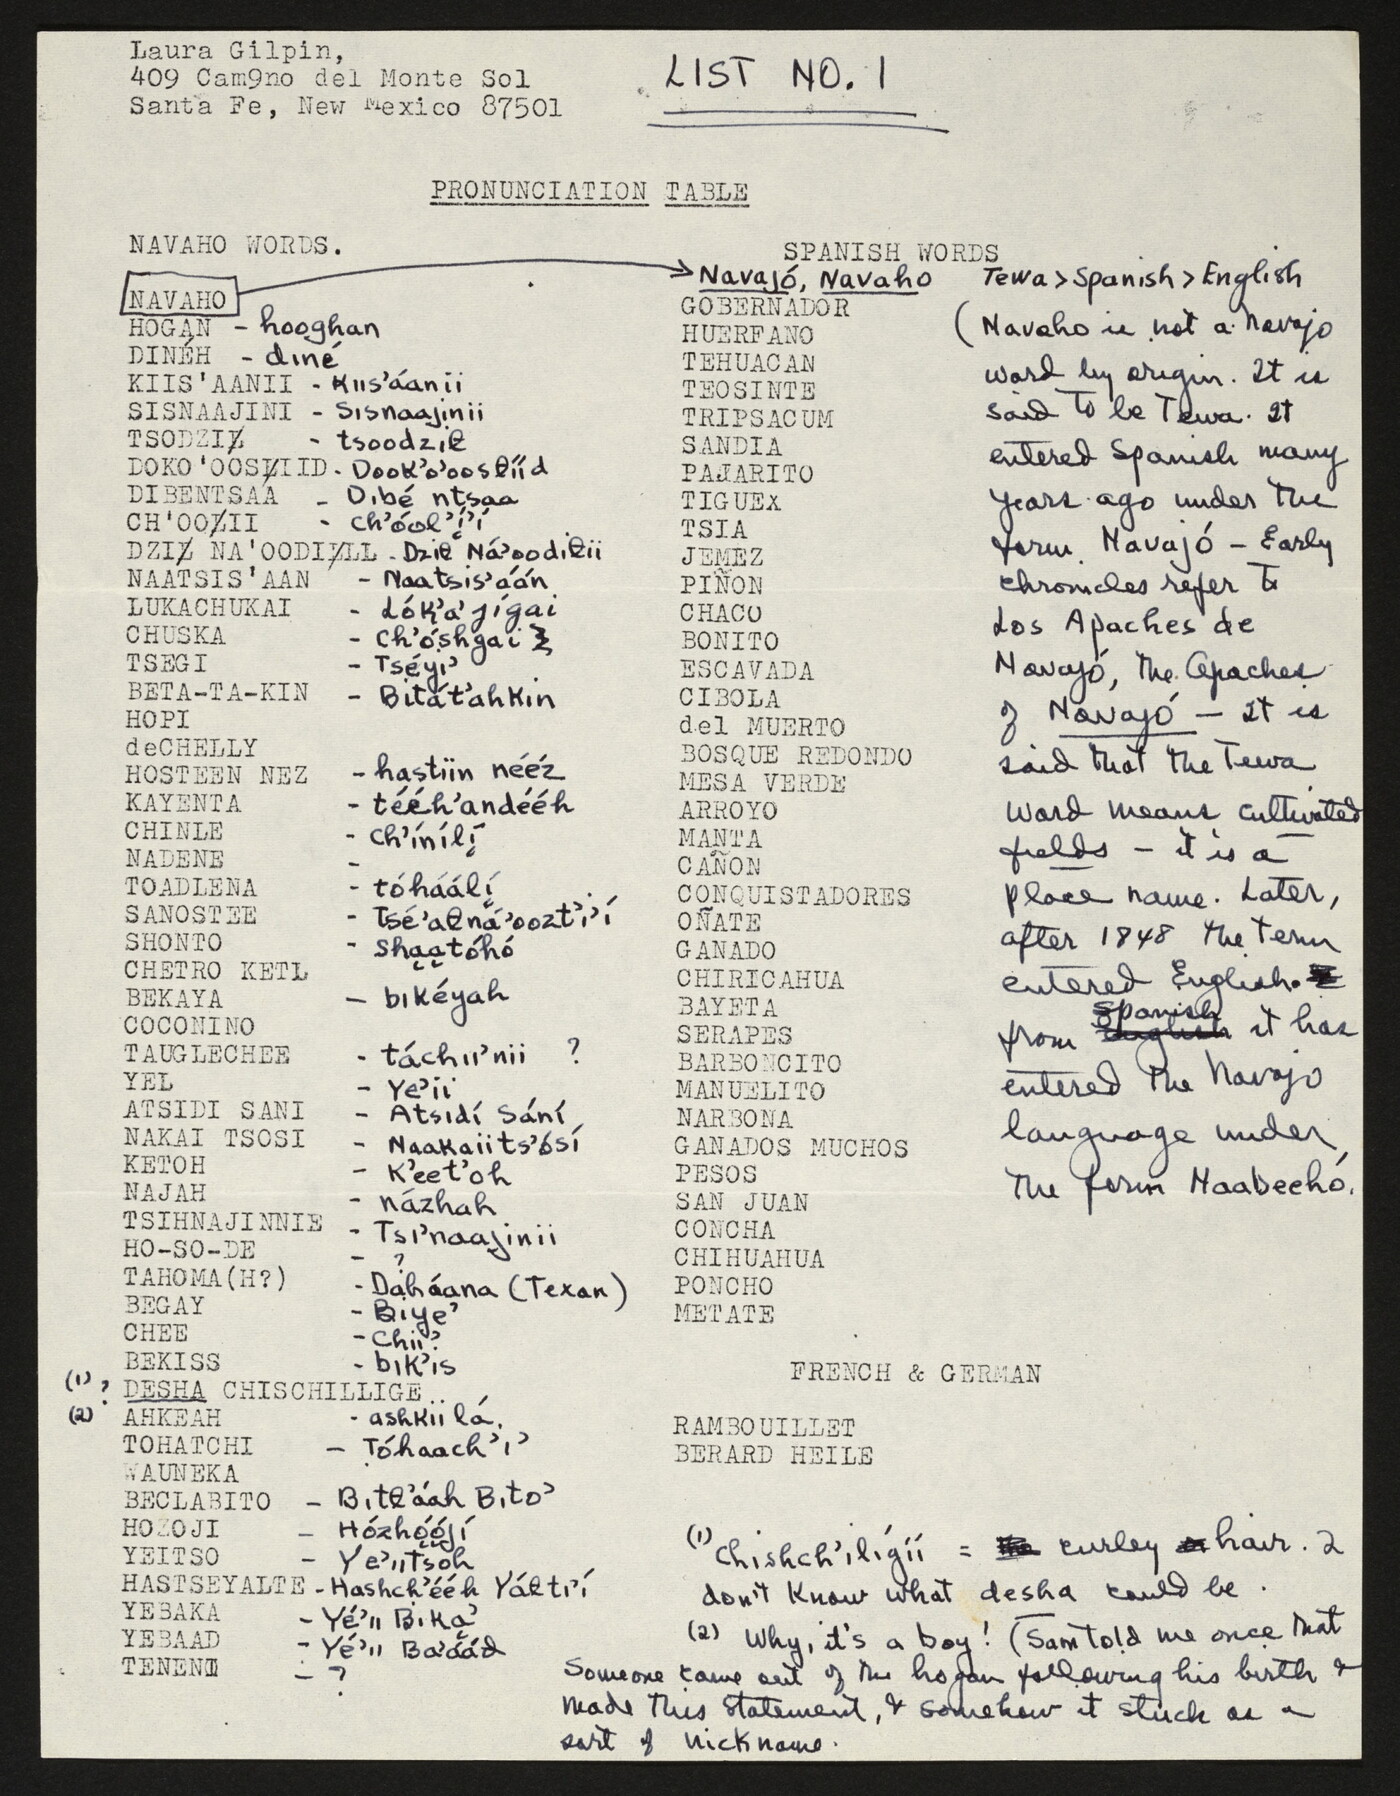 Laura Gilpin,
409 Cam9no del Monte Sol
Santa Fe, New Mexico 87501
LIST NO. 1
PRONUNCIATION TABLE
NAVAHO WORDS.
NAVAHO
HOGAN - hooghan
DINÉH - diné
KIIS'AANII - Kiis'áanii
SISNAAJINI - Sisnaajinii
TSODZIŁ - tsoodził
DOKO'OOSŁIID - Dook'o'oosłííd
DIBENTSAA - Dibé ntsaa
CH'OOŁII - Ch'óol'į́'í
DZIŁ NA'OODIŁLL - Dził Ná'oodiłii
NAATSIS'AAN - Naatsis'áán
LUKACHUKAI - Lók'a'jígai
CHUSKA - Ch'óshgai
TSEGI - Tséyi'
BETA-TA-KIN - Bitát'ahkin
HOPI
deCHELLY
HOSTEEN NEZ - hastiin nééz
KAYENTA - tééh'andééh
CHINLE - Ch'ínílį́
NADENE -
TOADLENA - tóháálį́
SANOSTEE - Tsé'ałná'oozt'i'í
SHONTO - Shąątóhó
CHETRO KETL
BEKAYA - bikéyah
COCONINO
TAUGLECHEE - táchii'nii ?
YEL - Ye'ii
ATSIDI SANI - Atsidí Sání
NAKAI TSOSI - Naakaiits'ósí
KETOH - K'eet'oh
NAJAH - názhah
TSIHNAJINNIE - Tsi'naajinii
HO-SO-DE - ?
TAHOMA(H?) - Daháana (Texan)
BEGAY - Biye'
CHEE - Chii?
BEKISS - bik'is
(1) ? DESHA CHISCHILLIGE
(2) AHKEAH - ashkii lá.
TOHATCHI - Tóhaach'i'
WAUNEKA
BECLABITO - Bitł'ááh Bito'
HOZOJI - Hózhǫ́ǫ́jí
YEITSO - Ye'iitsoh
HASTSEYALTE - Hashch'ééh Yáłti'í
YEBAKA - Yé'ii Biką'
YEBAAD - Yé'ii Ba'áád
TENENI - ?
SPANISH WORDS
Navajó, Navaho
GOBERNADOR
HUERFANO
TEHUACAN
TEOSINTE
TRIPSACUM
SANDIA
PAJARITO
TIGUEX
TSIA
JEMEZ
PIÑON
CHACO
BONITO
ESCAVADA
CIBOLA
del MUERTO
BOSQUE REDONDO
MESA VERDE
ARROYO
MANTA
CAÑON
CONQUISTADORES
OÑATE
GANADO
CHIRICAHUA
BAYETA
SERAPES
BARBONCITO
MANUELITO
NARBONA
GANADOS MUCHOS
PESOS
SAN JUAN
CONCHA
CHIHUAHUA
PONCHO
METATE
Tewa > Spanish > English
(Navaho is not a Navajo
word by origin. It is
said to be Tewa. It
entered Spanish many
years ago under the
form Navajó - Early
chronicles refer to
Los Apaches de
Navajó, the Apaches
of Navajó - It is
said that the Tewa
word means cultivated
fields - it is a
place name. Later,
after 1848 the term
entered English.
from English Spanish it has
entered the Navajo
language under
the form Naabeehó.
FRENCH & GERMAN
RAMBOUILLET
BERARD HEILE
(1) Chishch'ilígíí = curley hair. I
don't know what desha could be.
(2) Why, it's a boy! (Sam told me once that
someone came out of the hogan following his birth &
made this statement, & somehow it stuck as a
sort of nickname.